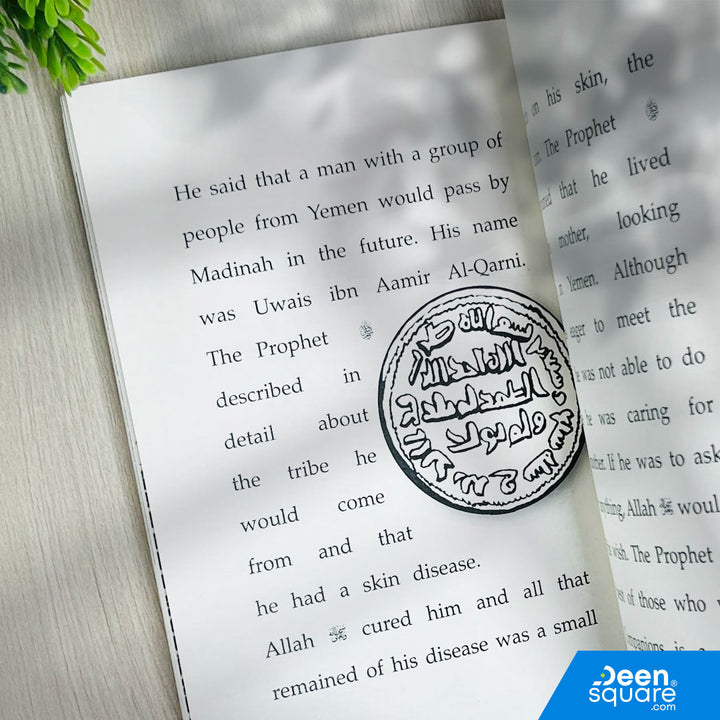 He said that a man with a group of
people from Yemen would pass by
Madinah in the future. His name
was Uwais ibn Aamir Al-Qarni.
The Prophet ﷺ
described in
detail about
the tribe he
would come
from and that
he had a skin disease.
Allah ﷻ cured him and all that
remained of his disease was a small
on his skin, the
The Prophet ﷺ
that he lived
mother, looking
Yemen. Although
to meet the
was not able to do
was caring for
If he was to ask
Allah ﷻ woul
wish. The Prophet
of those who
Deen
square®
.com